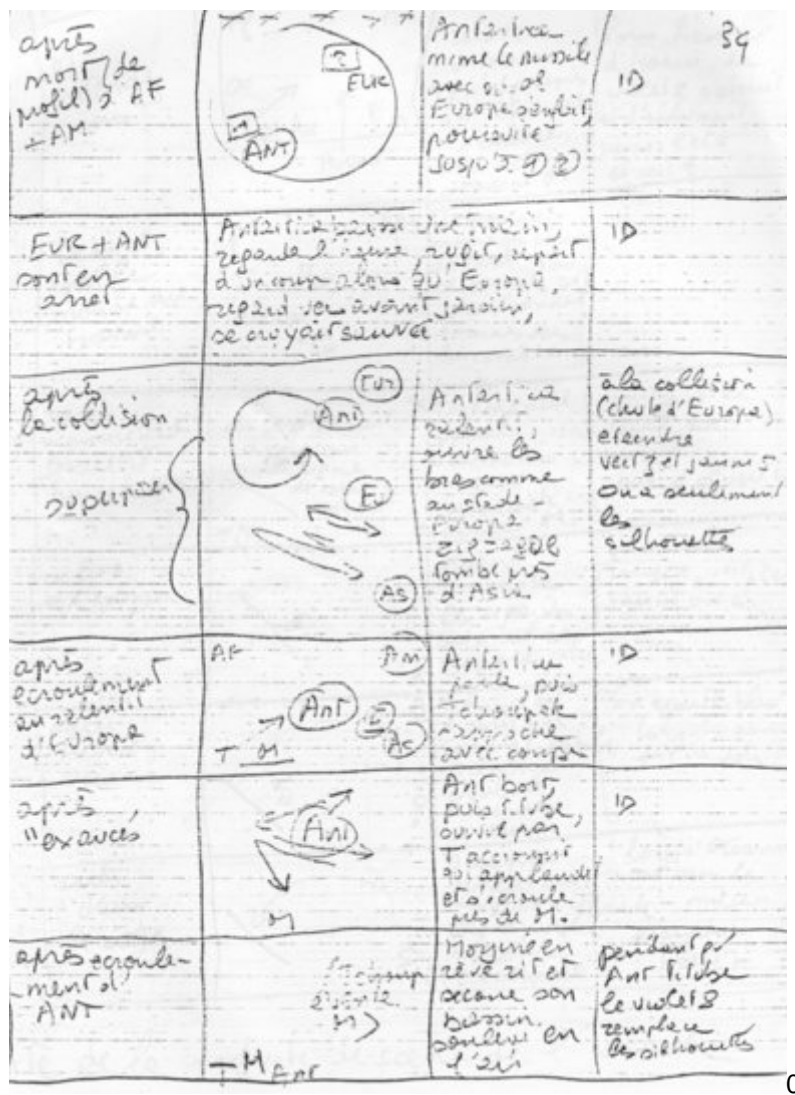 39
après
mort (de
profil) d'AF
+ AM
EUR
ANT
Antartica
mime le missile
avec
Europe
poursuite
ID
EUR + ANT
sont en
arrêt
Antartica baisse une main,
regarde l'heure, rugit, repart
d'un coup alors qu'Europa,
regard vers avant jardin,
se croyait sauvée
ID
après
la collision
Eur
Ant
E
As
Antartica
ralentit,
ouvre les
bras comme
au stade -
Europa
zigzague
tombe près
d'Asia
à la collision
(chute d'Europe)
eteindre
vert 3 et jaune 5
on a seulement
les
silhouettes
après
ecroulement
au ralenti
d'Europa
AF
Am
Ant
E
As
T M
Antartica
parle, puis
Tchoupak
rapproche
avec coupe
ID
après
"exaucés
Ant
M
Ant boit,
puis titube,
suivie par
T
qui applaudit
et s'écroule
près de M.
ID
après ecroule-
-ment d'
ANT
M
T M Ant
en
rêve rit et
secoue son
bassin
soulevé en
l'air
pendant qu'
Ant titube
le violet 8
remplace
les silhouettes